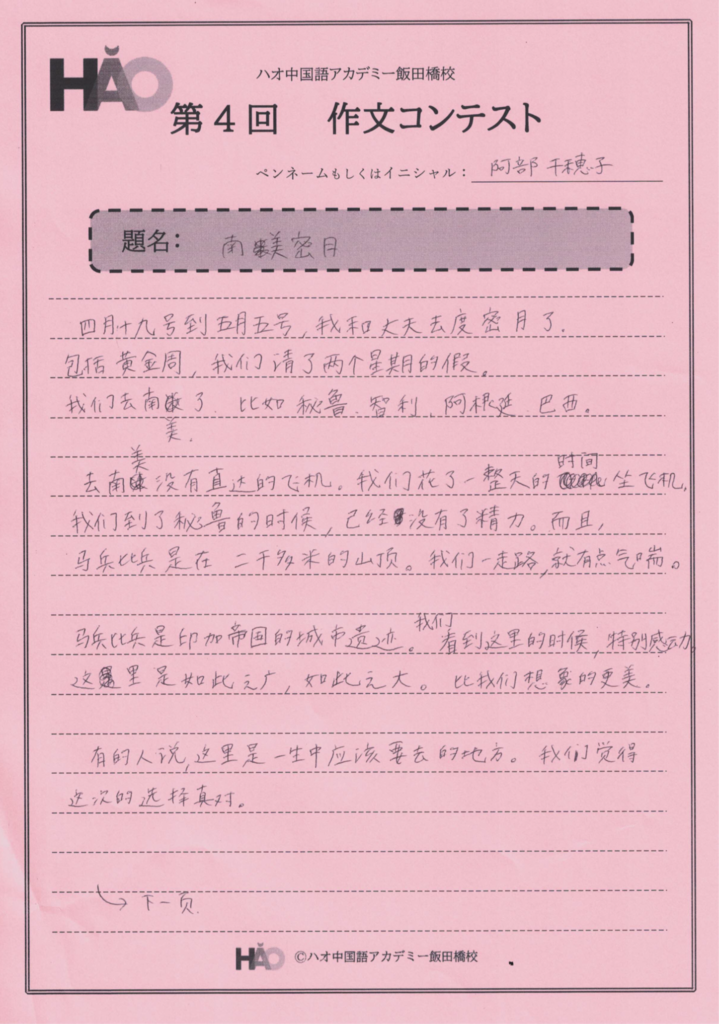 HǍO
ハオ中国語アカデミー飯田橋校
第4回 作文コンテスト
ペンネームもしくはイニシャル： 阿部 千穂子
題名： 南美密月
四月十九号到五月五号，我和丈夫去度密月了．
包括黄金周，我们请了两个星期的假。
我们去南美了．比如秘鲁、智利、阿根廷、巴西。
去南美没有直达的飞机。我们花了一整天的时间坐飞机．
我们到了秘鲁的时候，已经没有了精力。而且，
马兵比兵是在二千多米的山顶。我们一走路，就有点气喘。
马兵比兵是印加帝国的城市遗迹。我们看到这里的时候，特别感动．
这里是如此之广，如此之大。比我们想象的更美．
有的人说，这里是一生中应该要去的地方。我们觉得
这次的选择真对。
下一页．
HǍO ©ハオ中国語アカデミー飯田橋校